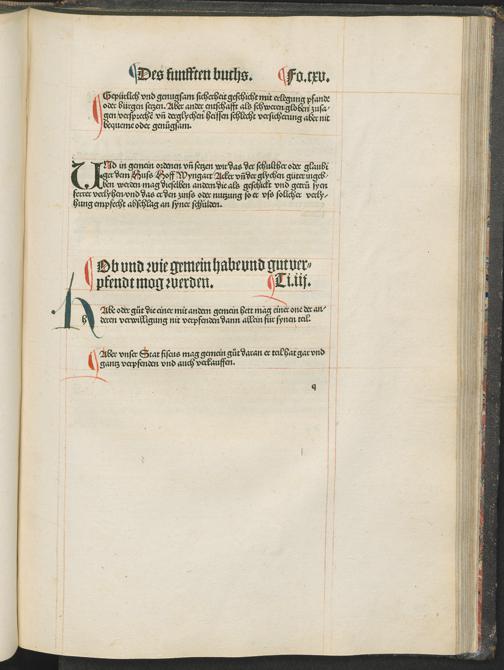 Des funfften buchs. Fo.cxv.
Gepürlich vnd genugsam sicherheit geschicht mit erlegung pfande
oder bürgen setzen. Aber ander entschafft als schweren globen zusa-
gen versprechē vn̄ derglychen heissen schlecht versicherung aber nit
bequeme oder genügsam.
Und in gemein ordenen vn̄ setzen wir das der schulther oder glaubi
ger dem Huss Hoff Wyngart Acker vn̄ der glychen güter ingeb-
ben werden mag dieselben andern die als geschickt vnd getrü syen
ferrer verlyhen vnd das er den zinss oder nutzung so er vss solicher verly-
hung empfecht abschlag an syner schülden.
Ob vnd wie gemein habe vnd gut ver-
pfendt mog werden. Ti.iij.
Habe oder güt die einer mit andern gemein hett mag einer one der an-
deren verwilligung nit verpfenden dann allein für synen teil.
Aber vnser Stat fiscus mag gemein güt daran er teil hat gar vnd
gantz verpfenden vnd auch verkauffen.
q